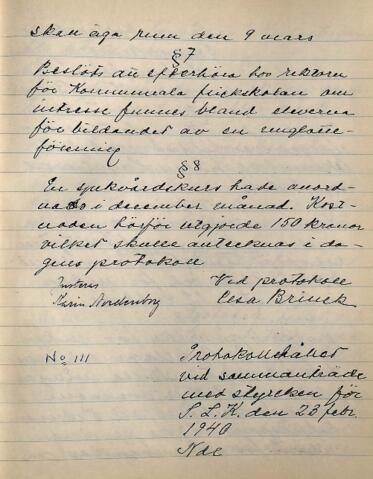 skall äga rum den 9 mars
§ 7
Beslöts att efterhöra hos rektorn
för Kommunala flickskolan om
intresse funnes bland eleverna
för bildandet av en ungdoms-
förening
§ 8
En sjukvårdskurs hade anord-
nats i december månad. Kost-
naden härför utgjorde 150 kronor
vilket skulle antecknas i da-
gens protokoll
Justeras Vid protokollet
Karin Nordenborg Elsa Brinck
No 111 Protokoll hållet
vid sammanträde
med styrelsen för
S. L. K. den 23 febr.
1940